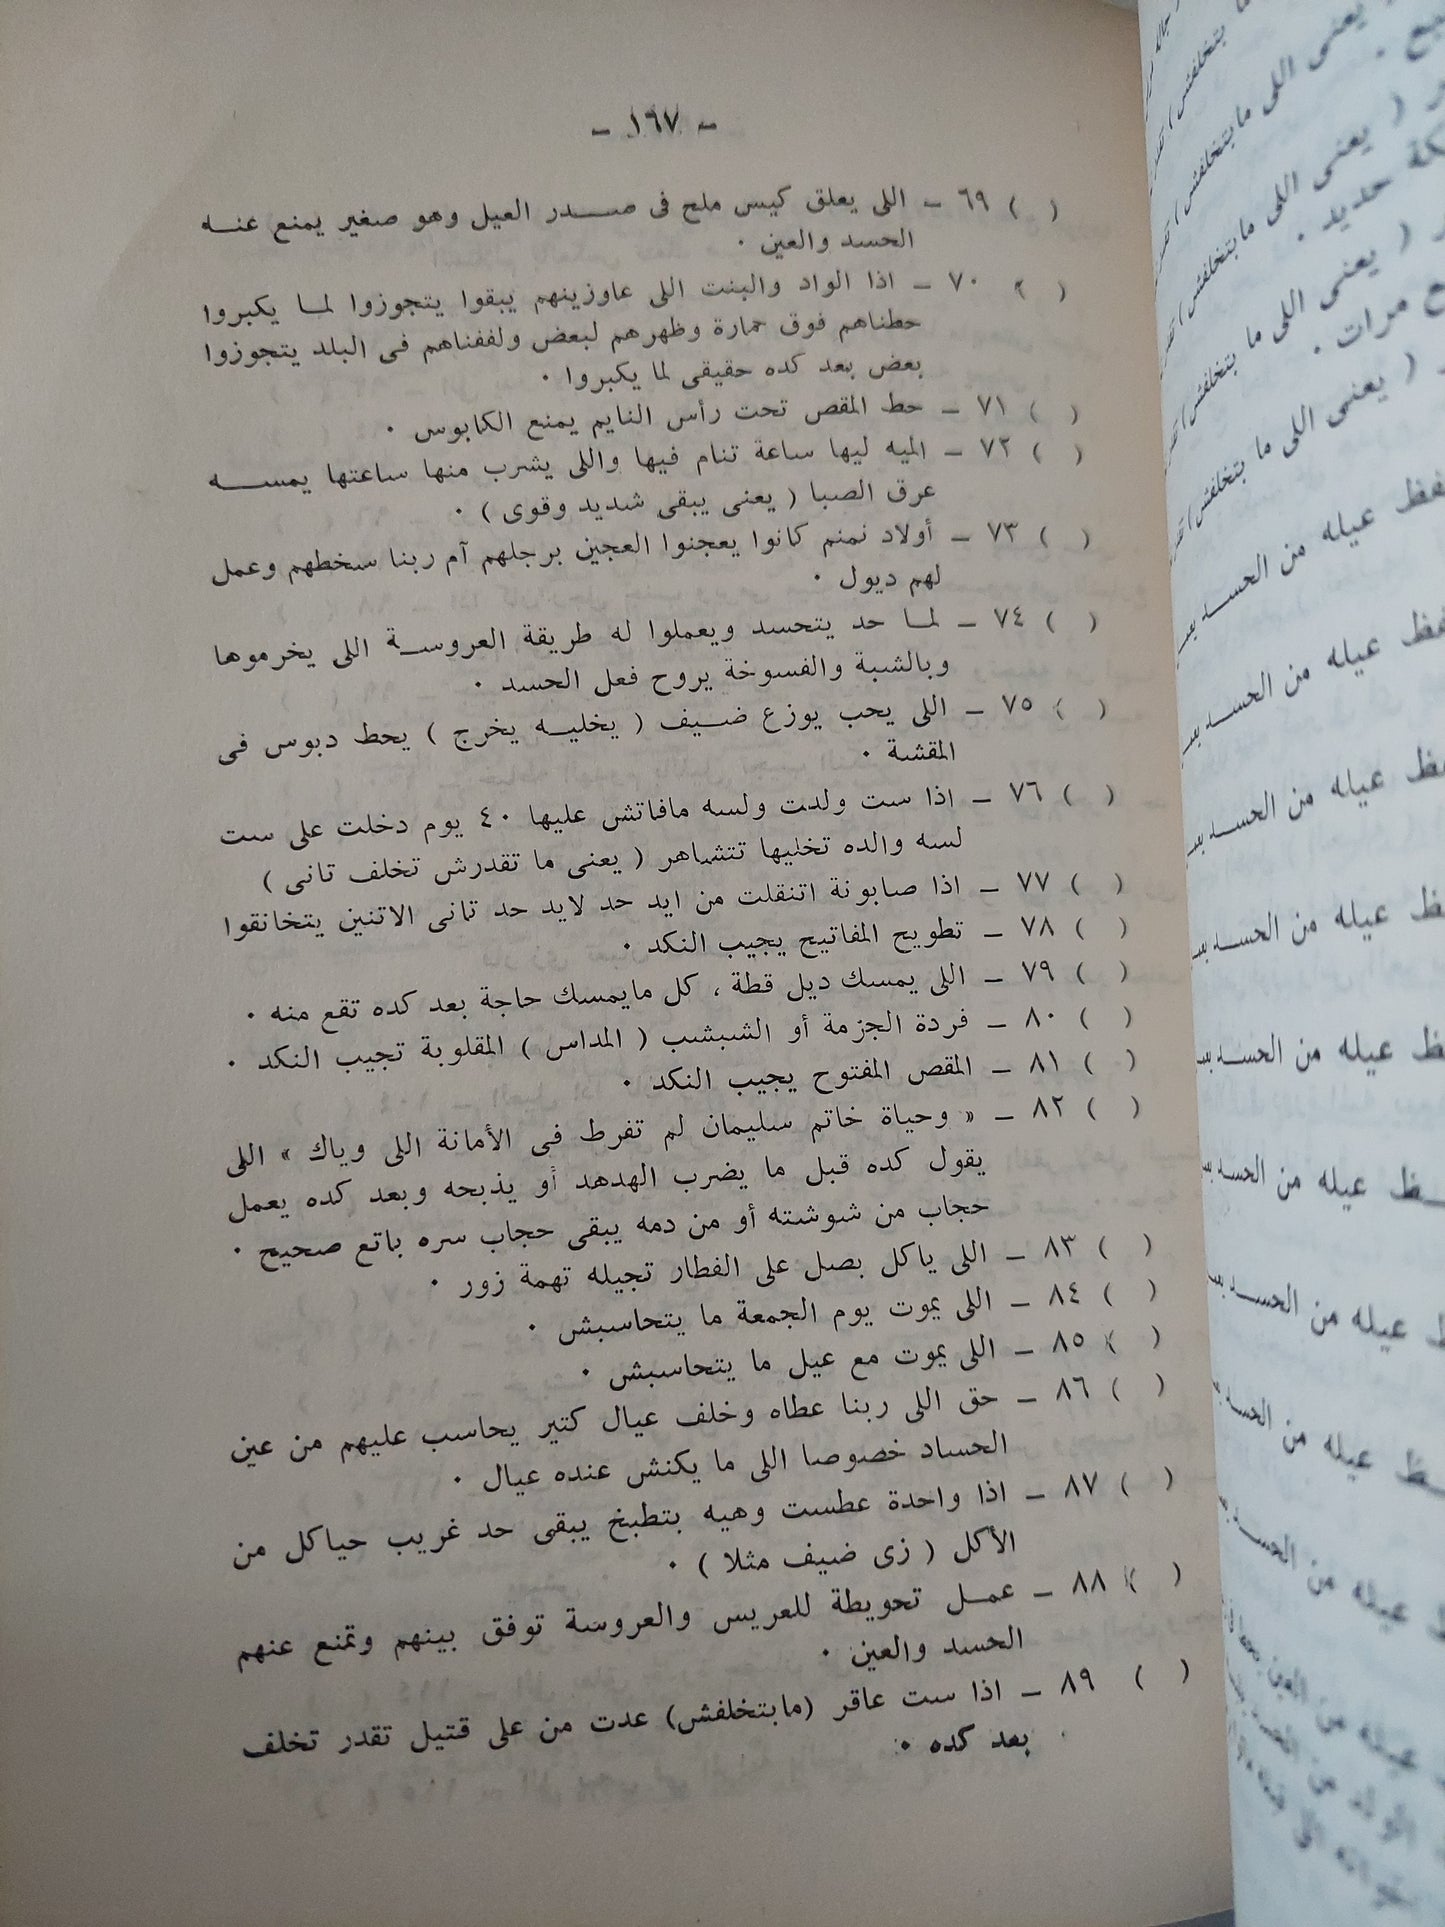 - ١٦٧ -
( ) ٦٩ - اللى يعلق كيس ملح فى صدر العيل وهو صغير يمنع عنه
الحسد والعين ·
( ) ٧٠ - اذا الواد والبنت اللى عاوزينهم يبقوا يتجوزوا لما يكبروا
حطناهم فوق حمارة وظهرهم لبعض ولففناهم فى البلد يتجوزوا
بعض بعد كده حقيقى لما يكبروا ·
( ) ٧١ - حط المقص تحت رأس النايم يمنع الكابوس ·
( ) ٧٢ - الميه ليها ساعة تنام فيها واللى يشرب منها ساعتها يمسه
عرق الصبا ( يعنى يبقى شديد وقوى ) ·
( ) ٧٣ - أولاد نمنم كانوا يعجنوا العجين برجلهم آم ربنا سخطهم وعمل
لهم ديول ·
( ) ٧٤ - لما حد يتحسد ويعملوا له طريقة العروسة اللى يخرموها
وبالشبة والفسوخة يروح فعل الحسد ·
( ) ٧٥ - اللى يحب يوزع ضيف ( يخليه يخرج ) يحط دبوس فى
المقشة ·
( ) ٧٦ - اذا ست ولدت ولسه مافاتش عليها ٤٠ يوم دخلت على ست
لسه والده تخليها تتشاهر ( يعنى ما تقدرش تخلف تانى )
( ) ٧٧ - اذا صابونة اتنقلت من ايد حد لايد حد تانى الاتنين يتخانقوا
( ) ٧٨ - تطويح المفاتيح يجيب النكد ·
( ) ٧٩ - اللى يمسك ديل قطة ، كل مايمسك حاجة بعد كده تقع منه ·
( ) ٨٠ - فردة الجزمة أو الشبشب ( المداس ) المقلوبة تجيب النكد ·
( ) ٨١ - المقص المفتوح يجيب النكد ·
( ) ٨٢ - « وحياة خاتم سليمان لم تفرط فى الأمانة اللى وياك » اللى
يقول كده قبل ما يضرب الهدهد أو يذبحه وبعد كده يعمل
حجاب من شوشته أو من دمه يبقى حجاب سره باتع صحيح ·
( ) ٨٣ - اللى ياكل بصل على الفطار تجيله تهمة زور ·
( ) ٨٤ - اللى يموت يوم الجمعة ما يتحاسبش ·
( ) ٨٥ - اللى يموت مع عيل ما يتحاسبش ·
( ) ٨٦ - حق اللى ربنا عطاه وخلف عيال كتير يحاسب عليهم من عين
الحساد خصوصا اللى ما يكنش عنده عيال ·
( ) ٨٧ - اذا واحدة عطست وهيه بتطبخ يبقى حد غريب حياكل من
الأكل ( زى ضيف مثلا ) ·
( ) ٨٨ - عمل تحويطة للعريس والعروسة توفق بينهم وتمنع عنهم
الحسد والعين ·
( ) ٨٩ - اذا ست عاقر (مابتخلفش) عدت من على قتيل تقدر تخلف
بعد كده ·
يعنى اللى مابتخلفش
( يعنى اللى مابتخلفش )
كة حديد ·
( يعنى اللى ما بتخلفش )
ح مرات ·
( يعنى اللى ما بتخلفش )
عيله من الحسد
عيله من الحسد
عيله من الحسد
عيله من الحسد
عيله من الحسد
عيله من الحسد
عيله من الحسد
عيله من الحسد
عيله من الحسد